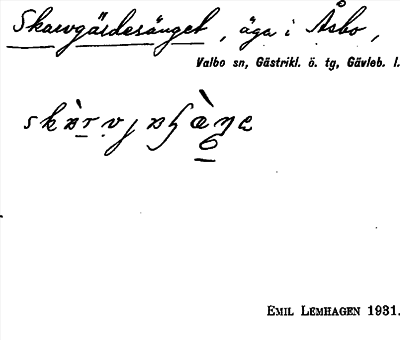 Skarvgärdesänget, äga i Åsbo,
Valbo sn, Gästrikl. ö. tg, Gävleb. l.
EMIL LEMHAGEN 1931.